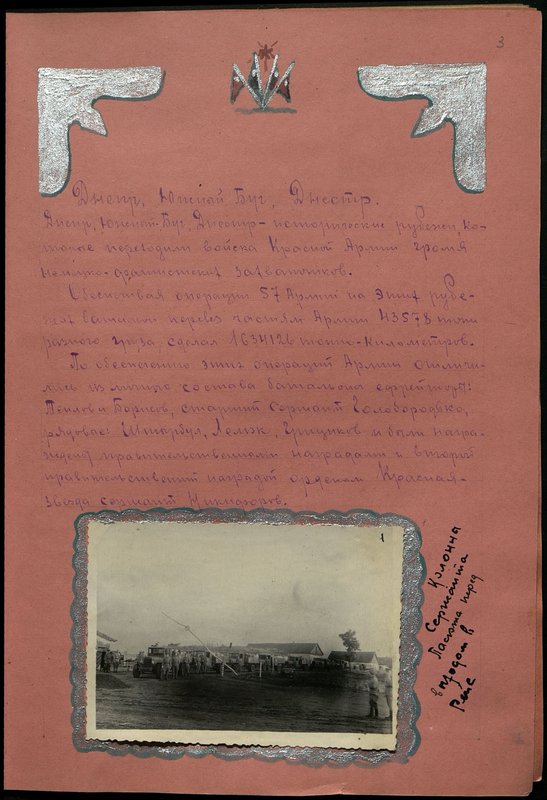 3
Днепр, Южной Буг, Днестр.
Днепр, Южной-Буг, Днестр - исторические рубежи, ко-
торые переходили войска Красной Армии громя
немецко-фашистских захватчиков.
Обеспечивая операции 57 Армии на этих рубе-
жах батальон перевез частям Армии 43578 тонн
разного груза сделал 1634126 тонно-километров.
По обеспечению этих операций Армии отличи-
лись из личного состава батальона ефрейторы:
Теплов и Борисов, старший сержант Голобородько,
рядовые: Лемж, Грициков и были награ-
ждены правительственными наградами и второй
правительственной наградой орденом Красная-
звезда сержант Никифоров.
1
Колонна
Сержанта
Пасюта перед
выходом в
Рейс